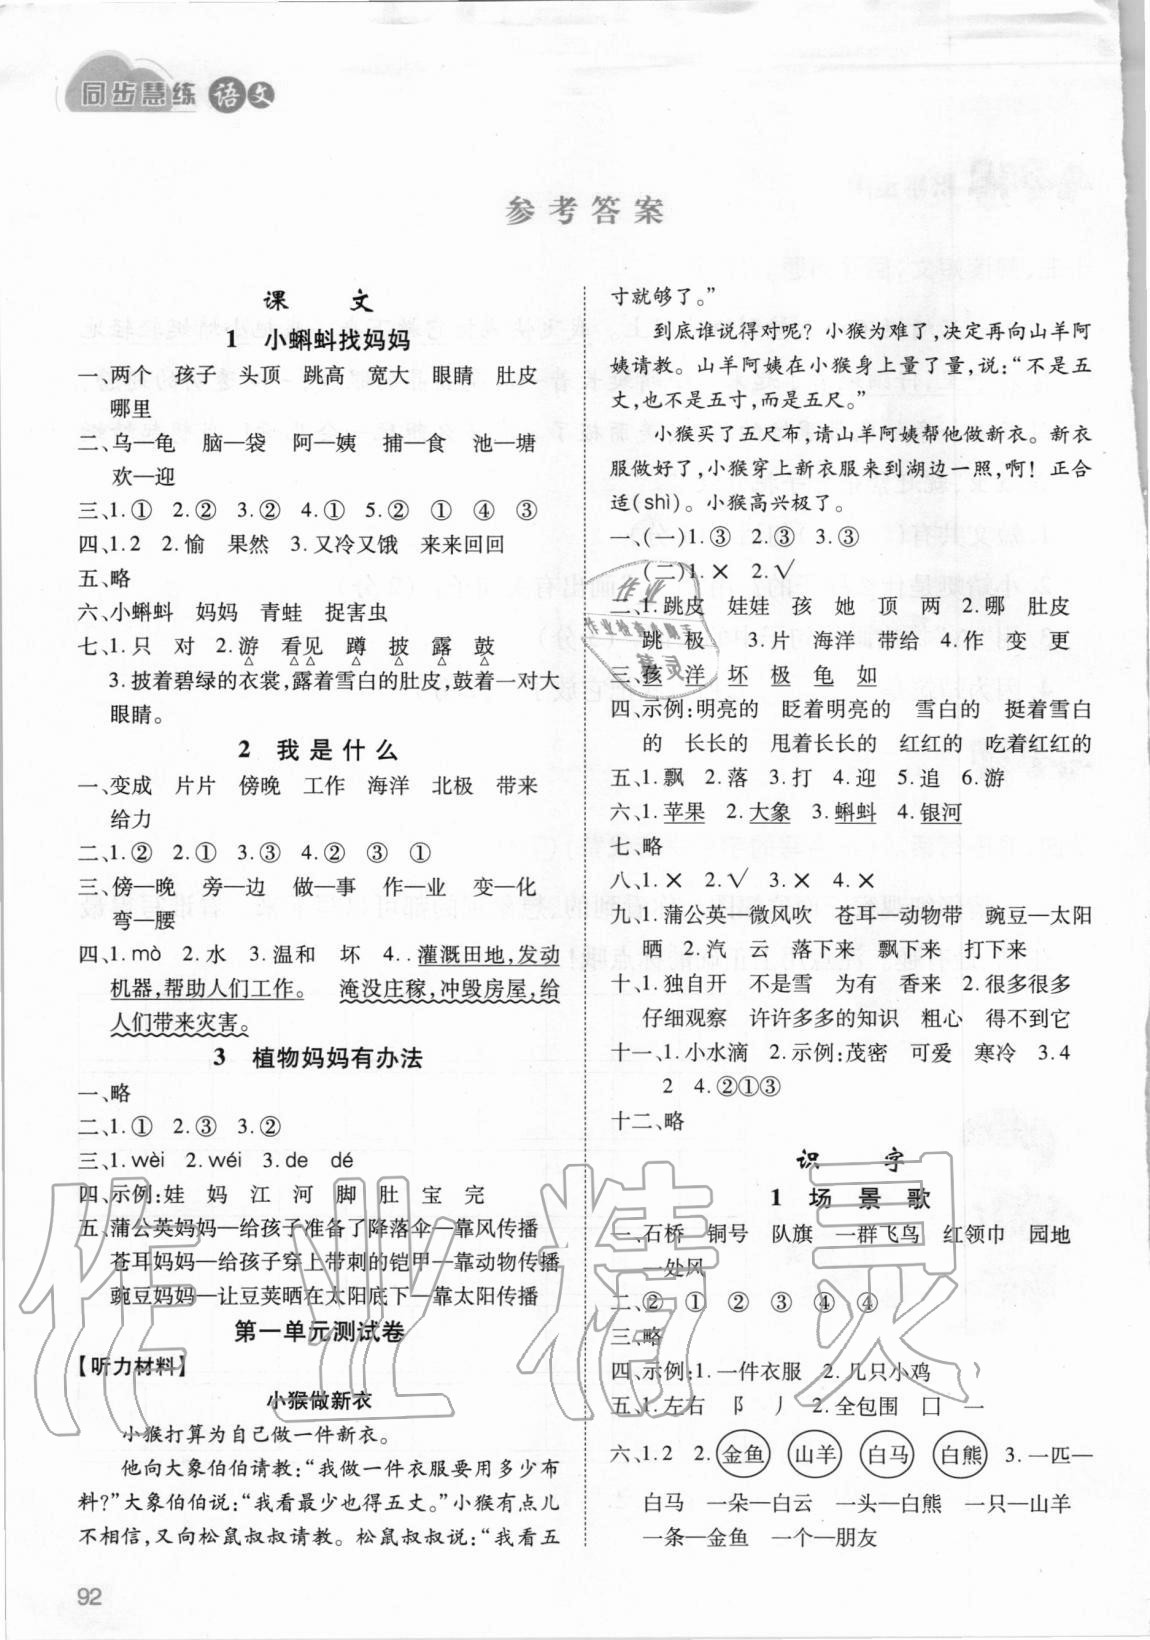 同步慧练 语文
参考答案
课 文
1 小蝌蚪找妈妈
一、两个 孩子 头顶 跳高 宽大 眼睛 肚皮
哪里
二、乌—龟 脑—袋 阿—姨 捕—食 池—塘
欢—迎
三、1.① 2.② 3.② 4.① 5.② ① ④ ③
四、1.2 2.愉 果然 3.又冷又饿 来来回回
五、略
六、小蝌蚪 妈妈 青蛙 捉害虫
七、1.只 对 2.游 看见 蹲 披 露 鼓
3.披着碧绿的衣裳,露着雪白的肚皮,鼓着一对大
眼睛。
2 我是什么
一、变成 片片 傍晚 工作 海洋 北极 带来
给力
二、1.② 2.① 3.③ 4.② ③ ①
三、傍—晚 旁—边 做—事 作—业 变—化
弯—腰
四、1.mò 2.水 3.温和 坏 4.灌溉田地,发动
机器,帮助人们工作。 淹没庄稼,冲毁房屋,给
人们带来灾害。
3 植物妈妈有办法
一、略
二、1.① 2.③ 3.②
三、1.wèi 2.wéi 3.de dé
四、示例:娃 妈 江 河 脚 肚 宝 完
五、蒲公英妈妈—给孩子准备了降落伞—靠风传播
苍耳妈妈—给孩子穿上带刺的铠甲—靠动物传播
豌豆妈妈—让豆荚晒在太阳底下—靠太阳传播
第一单元测试卷
【听力材料】
小猴做新衣
小猴打算为自己做一件新衣。
他向大象伯伯请教:“我做一件衣服要用多少布
料?”大象伯伯说:“我看最少也得五丈。”小猴有点儿
不相信,又向松鼠叔叔请教。松鼠叔叔说:“我看五
92
寸就够了。”
到底谁说得对呢?小猴为难了,决定再向山羊阿
姨请教。山羊阿姨在小猴身上量了量,说:“不是五
丈,也不是五寸,而是五尺。”
小猴买了五尺布,请山羊阿姨帮他做新衣。新衣
服做好了,小猴穿上新衣服来到湖边一照,啊!正合
适(shì)。小猴高兴极了。
一、(一)1.③ 2.③ 3.③
(二)1.× 2.√
二、1.跳皮 娃娃 孩 她 顶 两 2.哪 肚皮
跳 极 3.片 海洋 带给 4.作 变 更
三、孩 洋 坏 极 龟 如
四、示例:明亮的 眨着明亮的 雪白的 挺着雪白
的 长长的 甩着长长的 红红的 吃着红红的
五、1.飘 2.落 3.打 4.迎 5.追 6.游
六、1.苹果 2.大象 3.蝌蚪 4.银河
七、略
八、1.× 2.√ 3.× 4.×
九、1.蒲公英—微风吹 苍耳—动物带 豌豆—太阳
晒 2.汽 云 落下来 飘下来 打下来
十、1.独自开 不是雪 为有 香来 2.很多很多
仔细观察 许许多多的知识 粗心 得不到它
十一、1.小水滴 2.示例:茂密 可爱 寒冷 3.4
2 4.②①③
十二、略
识 字
1 场景歌
一、石桥 铜号 队旗 一群飞鸟 红领巾 园地
一处风
二、② ① ② ③ ④ ④
三、略
四、示例:1.一件衣服 2.几只小鸡
五、1.左右 阝 丿 2.全包围 囗 一
六、1.2 2.金鱼 山羊 白马 白熊 3.一匹—
白马 一朵—白云 一头—白熊 一只—山羊
一条—金鱼 一个—朋友
作业精灵